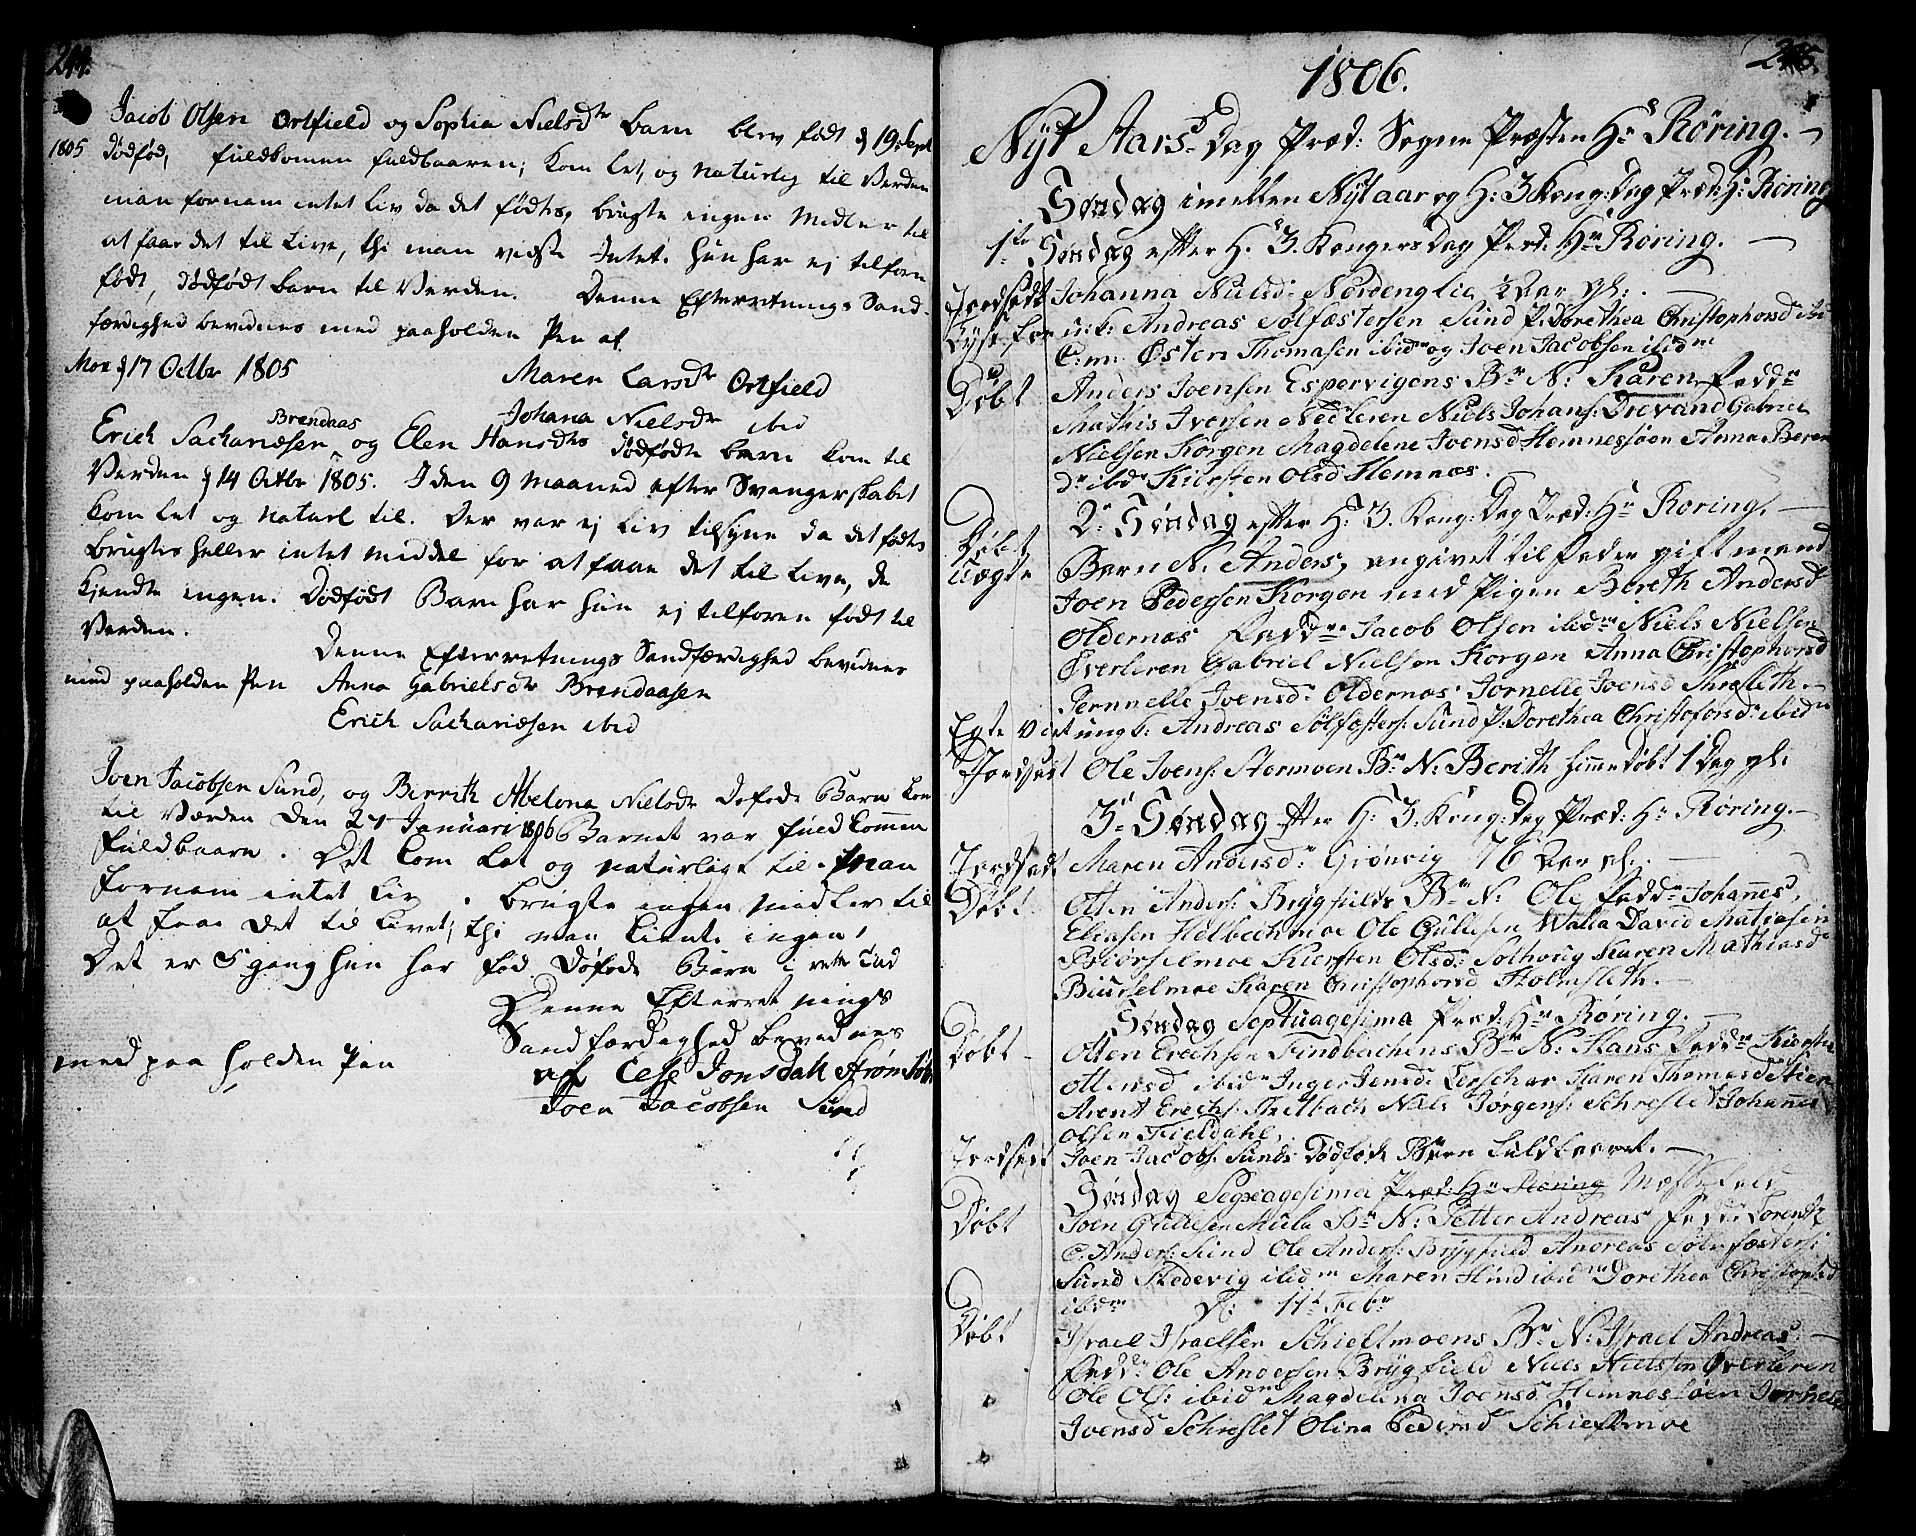 244.
Jacob Olsen Ortfield og Sophia Nielsdtr barn blev født d 19 Sept
1805 dødfød, fuldkomen fuldbaaren; kom let, og naturlig til Verden
man fornam intet Liv da det fødtes, brugte ingen Midler til
at faae det til Live, thi man vidste Intet. hun har ej tilforn
født, dødfødt barn til Verden. Denne Efterretnings Sand-
færdighed bevidnes med paaholden Pen af
Moe d 17 Octbr 1805 Maren Larsdtr Ortfield
Johana Nielsdtr ibid
Brendaas
Erich Sachariæsen og Elen Hansdtrs dødfødte barn kom til
Verden d 14 Octbr 1805. I den 9 Maaned efter Svangerskabet
kom let og naturl til. Der var ej Liv tilsyne da det fødtes
brugtes heller intet Middel for at faae det til Live, de
kjendte ingen. Dødfødt Barn har hun ej tilforen født til
Verden.
Denne Efterretnings Sandfærdighed bevidnes
med paaholden Pen Anna Gabrielsdtr Brendaasen
Erich Sachariæsen ibid
Joen Jacobsen Sund, og Berrith Abelona Nielsdr Døføde Barn kom
til Værden den 27 Januari 1806 Barnet var fuldkommen
fuldbaarn. Det kom let og naturligt til. man
fornam intet Liv. brugte ingen Midler til
at faae det til Livet; thi man kiente ingen,
Det er 5 gang hun har fød Døføde Børn i rette Tid
Denne Efterretnings
Sandfærdighed bevidnes
med paa holden Pen af Cese Jonsdatt
Joen Jacobsen Sund
245.
1806.
Nyt Aars-Dag Præd: Sogne Præsten Hr Röring.
Søndag imellem Nytaar og H: 3 Kong: Dag Præd: Hr: Röring
1ste Søndag efter H. 3. Kongers Dag Præd: Hr Röring.
Jordsatt Johanna Nielsd: Nordenglie Aar gl:
Lyst for u.k: Andreas Sølfæstersen Sund P: Dorethea Christophorsd ibid
C:m: Østen Thomasen ibidm og Joen Jacobsen ibidm
Døbt Anders Joensen Espervigens Bn N: Karen, Fadd:
Mathis Iversen Nedleren Niels Johans: Drevand Gabriel
Nielsen Korgen Magdelene Joensd Hemnessøen Anna Beren
dr ibid Kiersten Olsd Hemnæs.
2. Søndag efter H: 3. Kong: Dag Præd: Hr Roring.
Døbt uægte Barn N. Anders, angivet til Fader gift mand
Joen Pedersen Korgen med Pigen Bereth Andersd
Oldernæs Fadd:ne Jacob Olsen ibidm Niels Nielsen
Øverleren Gabriel Nielsen Korgen Anna Christophorsd
Pernnelle Joensd: Oldernæs Jornelle Joensd Skresleth.
Egte Viet ungk: Andreas Sølfæsters: Sund P: Dorethea Christoforsd: ibidm
Jordsatt Ole Joens: Stormoen Bn N: Berith hiemmedøbt 1 Dag gl:
3. Søndag efter H: 3. Kong: Dag Præd: Hr Röring.
Jordsat Maren Andersd: Grönvig 76 Aar gl:
Døbt Otten Anders: Brygfields Bn N: Ole Fadd: Johannes
Eliasen Helbechmoe Ole Gullesen Walla David Matiasen
Kiersten Olsd: Solhoug Karen Mathiasd
Karen Christophorsd Holmsleth.
Søndag Septuagesima Præd: Hr Röring.
Døbt Otten Erichsen Findbachens Bn N: Hans Fadd:
Ottensd ibid Inger Jensd: Lerschar Karen Thomasd
Arent Erichs: Niels Jørgens: Schreslet Johannes
Olsen Fieldahl.
Jordsatt Joen Jacobs: Sunds Dødføde Børn fuldbaaret.
Søndag Sexagesima Præd: Hr Roring Messefald
Døbt Joen Gullesen Bn N: Petter Andreas Fadd: Lorentz
C: Anders: Sund Ole Anders: Brygfield Andreas Sølfæsters:
Sund Hedevig ibidm Maren Sund ibidm Dorethea Christophd
ibidm D: 11t Febr
Døbt Israel Israelsen Schieltmoens Bn N: Israel Andreas
Fadd: Ole Andersen Brygfield Niels Nielsen Overleren
Ole Ols: ibidm Magdelina Joensd Hemnessøen Jornele
Joensd Schreslet Olina Pedersd Schieltmoe